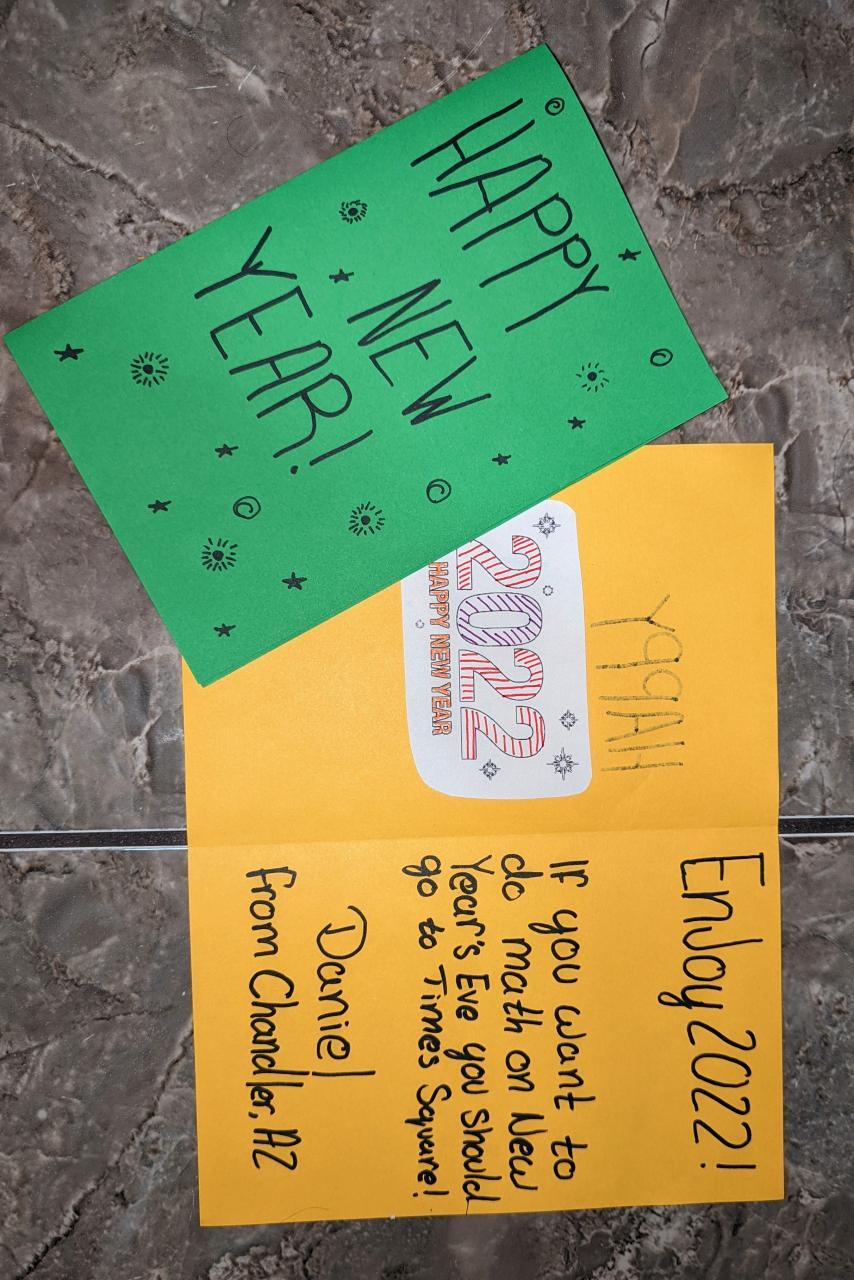 HAPPY
NEW
YEAR!
YqqAH
2022
HAPPY NEW YEAR
EnJoy 2022!
If you want to
do math on New
Year's Eve you should
go to Times Square!
Daniel
from Chandler, AZ